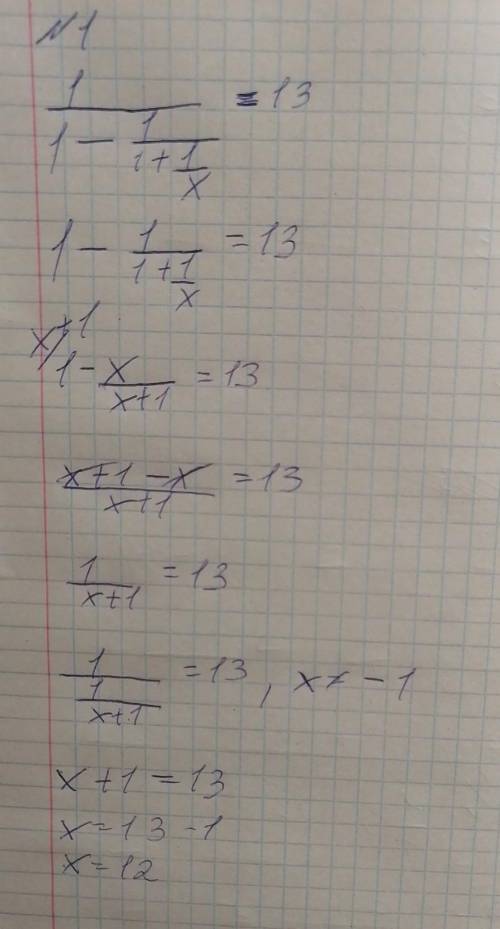 №1
1/(1 - 1/(1 + 1/x)) = 13
1 - 1/(1 + 1/x) = 13
x+1
1 - x/(x+1) = 13
(x+1-x)/(x+1) = 13
1/(x+1) = 13
1/(1/(x+1)) = 13, x ≠ -1
x + 1 = 13
x = 13 - 1
x = 12